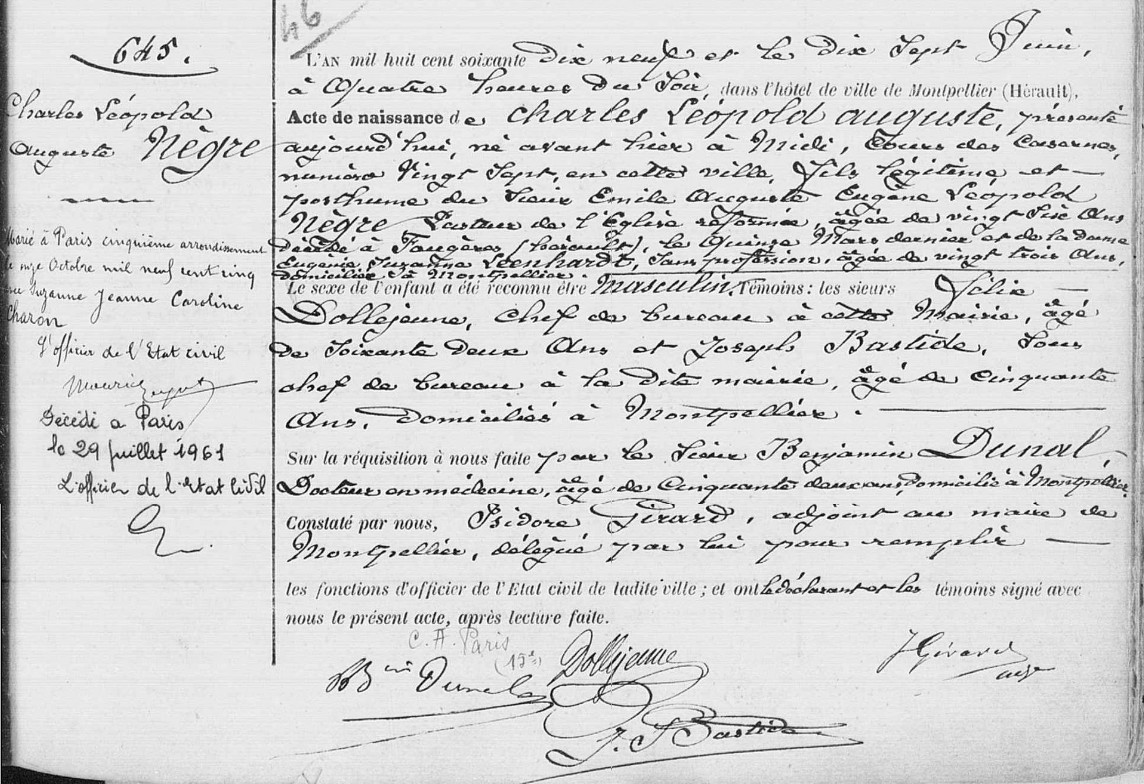 46
645.
Charles Léopold
Auguste Nègre
Marié à Paris cinquième arrondissement
le onze Octobre mil neuf cent cinq
Suzanne Jeanne Caroline
Charon
L'officier de l'Etat civil
Décédé a Paris
le 29 juillet 1961
L'officier de l'Etat Civil
L'AN mil huit cent soixante dix neuf et le dix Sept Juin,
à Quatre heures du Soir, dans l'hôtel de ville de Montpellier (Hérault),
Acte de naissance de Charles Léopold auguste, présenté
aujourd'hui, né avant hier à Midi, Cours des Casernes,
numéro Vingt Sept, en cette ville, fils légitime et —
posthume du Sieur Emile Auguste Eugène Léopold
Nègre Pasteur de l'Eglise réformée, âgée de vingt Six Ans
décédé à Faugères (hérault), le Quinze Mars dernier et de la dame
Eugénie Suzanne Leenhardt, Sans profession, âgée de vingt trois Ans,
domiciliée à Montpellier.
Le sexe de l'enfant a été reconnu être Masculin. Témoins : les sieurs Félix —
Dollejeune, Chef de bureau à cette Mairie, âgé
de Soixante deux Ans et Joseph Bastide, Sous
chef de bureau à la dite mairie, âgé de Cinquante
Ans, domiciliés à Montpellier. —
Sur la réquisition à nous faite par le Sieur Benjamin Dunal,
Docteur en médecine, âgé de Cinquante deux ans, domicilié à Montpellier.
Constaté par nous, Isidore Girard, adjoint au maire de
Montpellier, délégué par lui pour remplir —
les fonctions d'officier de l'Etat civil de ladite ville ; et ont le déclarant et les témoins signé avec
nous le présent acte, après lecture faite.
C.A. Paris
(15e)
Bin Dunal
Dollejeune
J Girard
adj
J. Bastide